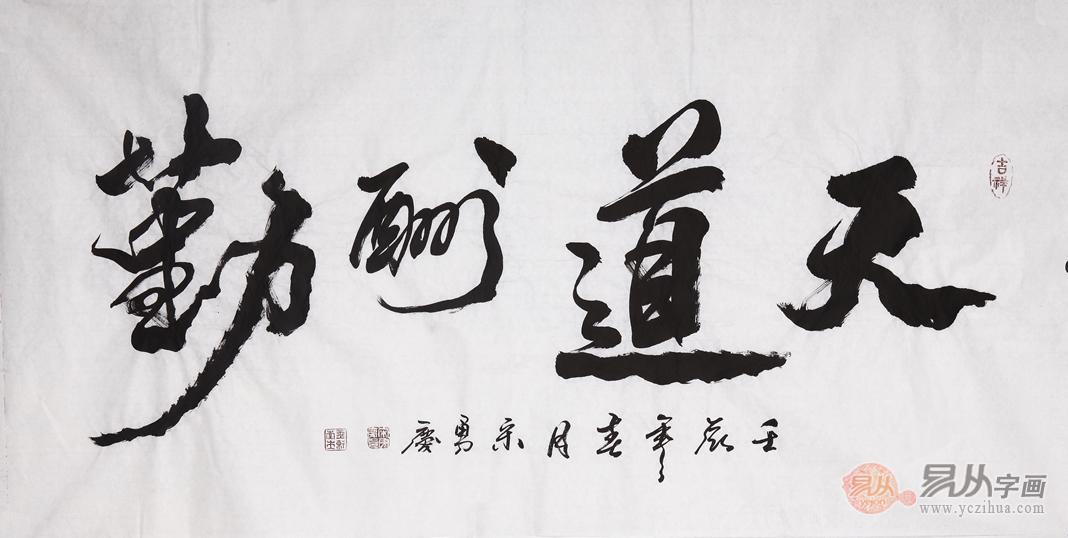 天道酬勤
吉祥
壬辰年春月宋勇慶
易从
易从字画
www.yczihua.com